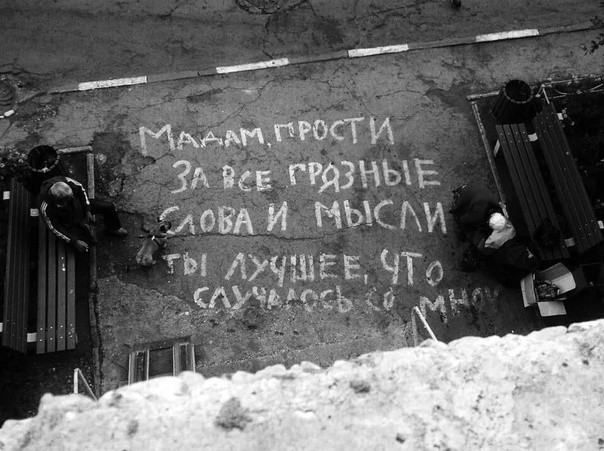 Мадам, прости
За все грязные
слова и мысли
ты лучшее, что
случалось со мной